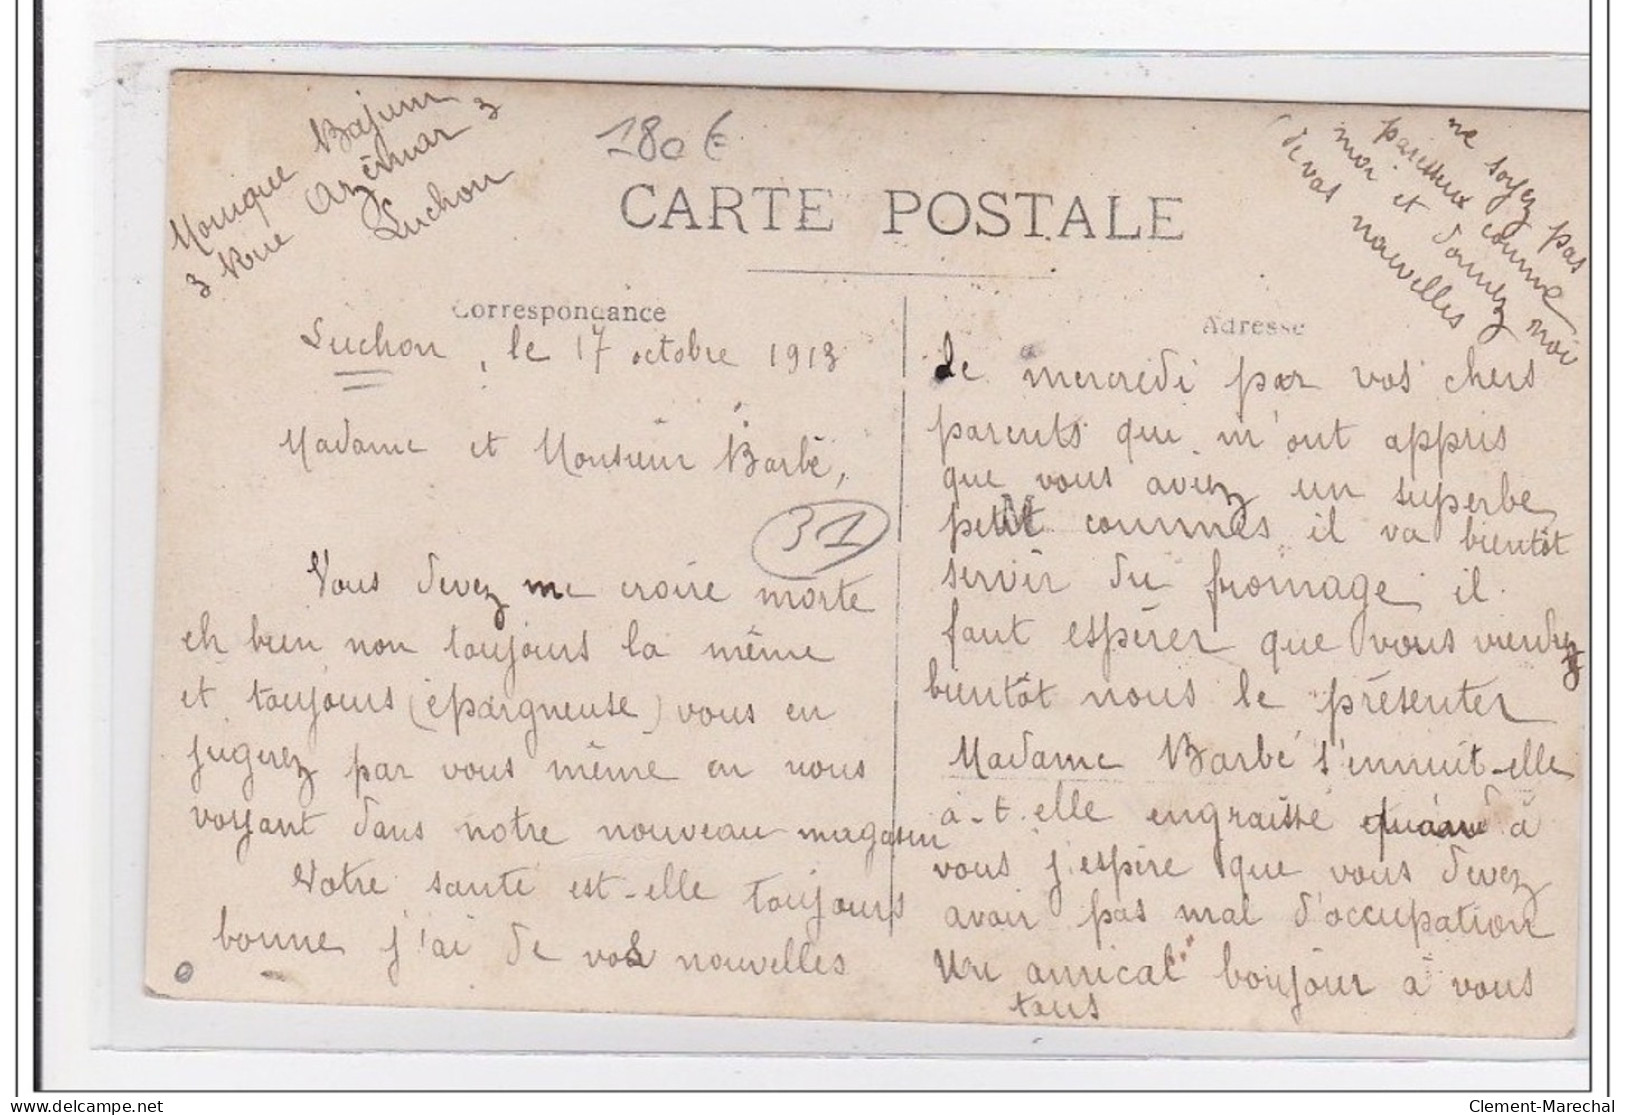 Monique Bajun
3 Rue Azémar 3
Luchon
180 €
ne soyez pas
paresseux comme
moi et donnez moi
de vos nouvelles
CARTE POSTALE
Correspondance
Adresse
Luchon, le 17 octobre 1913
Madame et Monsieur Barbé,
31
Vous devez me croire morte
eh bien non toujours la même
et toujours (épargneuse) vous en
jugerez par vous même en nous
voyant dans notre nouveau magasin
Votre santé est-elle toujours
bonne j'ai de vos nouvelles
le mercredi par vos chers
parents qui m'ont appris
que vous aviez un superbe
petit commis il va bientôt
servir du fromage il
faut espérer que vous viendrez
bientôt nous le présenter
Madame Barbé s'ennuit-elle
a-t-elle engraissé quand à
vous j'espère que vous devez
avoir pas mal d'occupation
Un amical bonjour à vous
tous
delcampe.net
Clement-Marechal